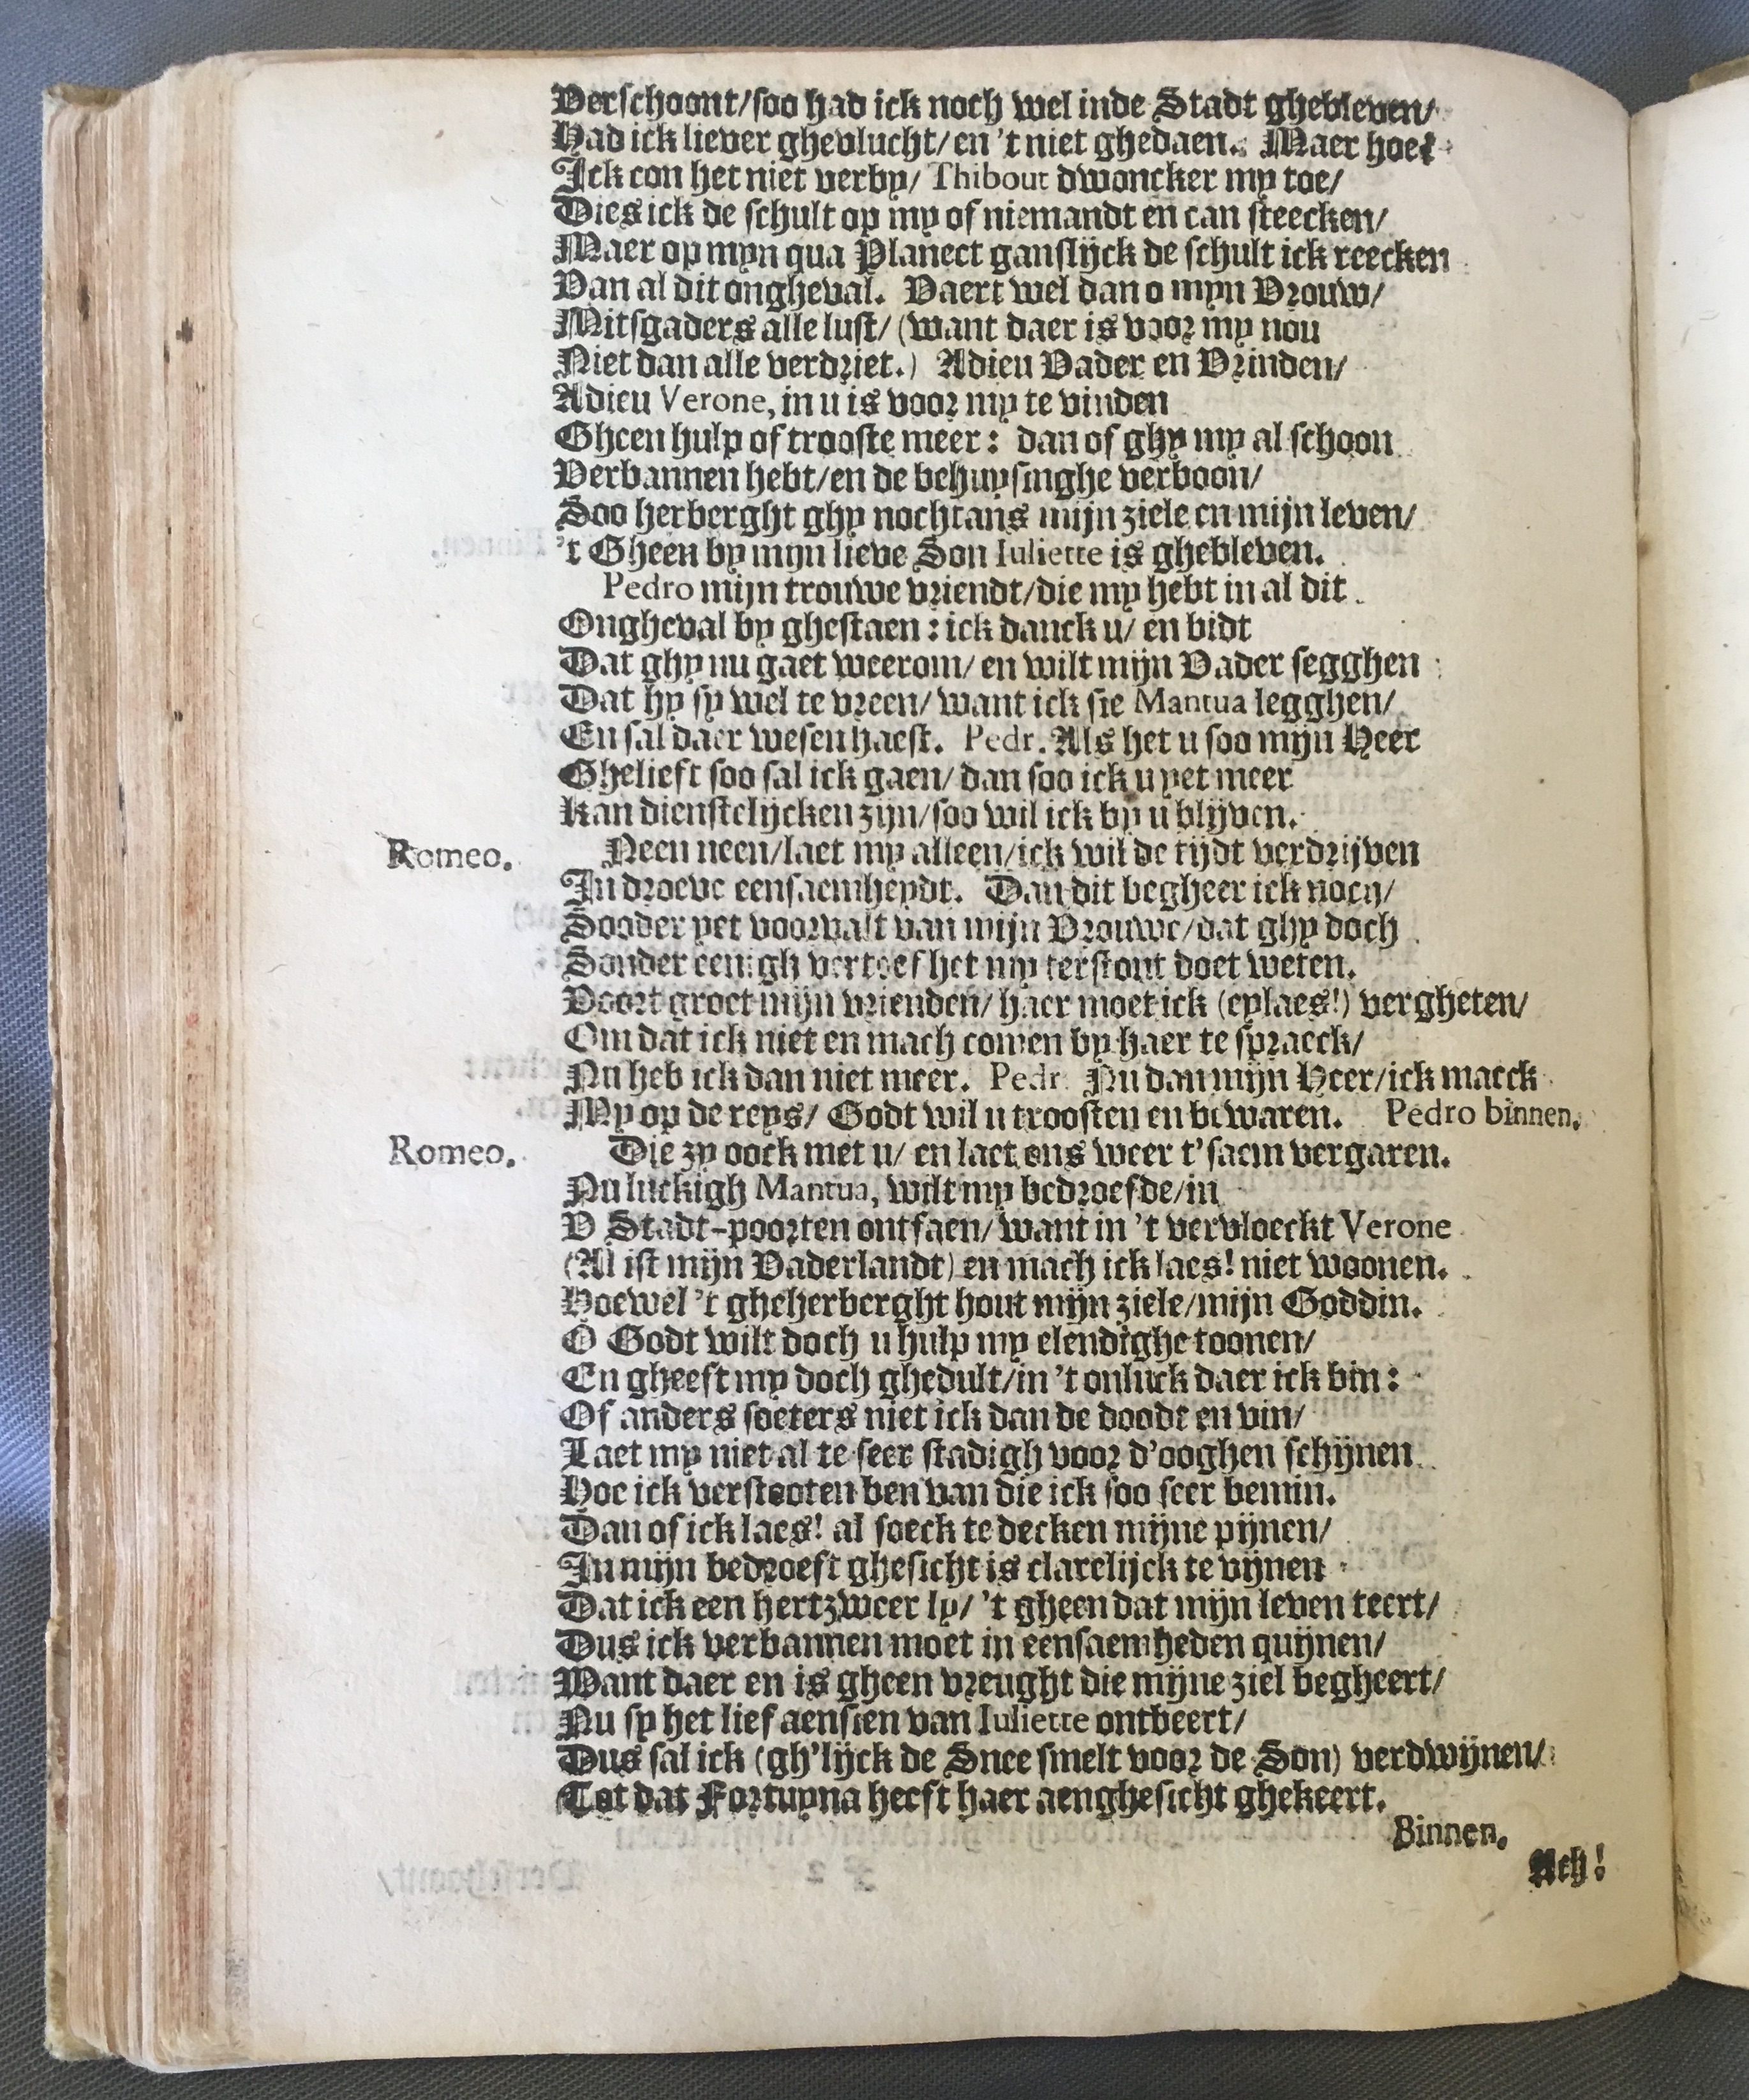 Verschoont/soo had ick noch wel inde Stadt ghebleven/
Had ick liever ghevlucht/en 't niet ghedaen. Maer hoe?
Ick con het niet verby/ Thibout dwoncker my toe/
Dies ick de schult op my of niemandt en can steecken/
Maer op myn qua Planeet ganslijck de schult ick reecken
Van al dit ongheval. Vaert wel dan o myn Vrouw/
Mitsgaders alle lust/ (want daer is voor my nou
Niet dan alle verdriet.) Adieu Vader en Vrinden/
Adieu Verone, in u is voor my te vinden
Gheen hulp of trooste meer: dan of ghy my al schoon
Verbannen hebt/en de behuysinghe verboon/
Soo herberght ghy nochtans mijn ziele en mijn leven/
't Gheen by myn lieve Son Iuliette is ghebleven.
Pedro mijn trouwe vriendt/die my hebt in al dit
Ongheval by ghestaen: ick danck u/ en bidt
Dat ghy nu gaet weerom/ en wilt mijn Vader segghen
Dat hy sy wel te vreen/ want ick sie Mantua legghen/
En sal daer wesen haest. Pedr. Als het u soo mijn Heer
Ghelieft soo sal ick gaen/ dan soo ick u yet meer
Kan dienstelijcken zijn/soo wil ick by u blijven.
Romeo. Neen neen/laet my alleen/ick wil de tijdt verdrijven
In droeve eensaemheydt. Dan dit begheer ick noch/
Sooder yet voorvalt van mijn Vrouwe/dat ghy doch
Sonder eenigh vertoef het my terstont doet weten.
Voort groet mijn vrienden/ haer moet ick (eylaes!) vergheten/
Om dat ick niet en mach comen by haer te spraeck/
Nu heb ick dan niet meer. Pedr. Nu dan mijn Heer/ick maeck
My op de reys/ Godt wil u troosten en bewaren. Pedro binnen.
Romeo. Die zy oock met u/ en laet ons weer t'saem vergaren.
Nu luckigh Mantua, wilt my bedroefde/in
V Stadt-poorten ontfaen/want in 't vervloeckt Verone
(Al ist mijn Vaderlandt) en mach ick laes! niet woonen.
Hoewel 't gheherberght hout mijn ziele/mijn Goddin.
O Godt wilt doch u hulp my elendighe toonen/
En gheeft my doch ghedult/in 't onluck daer ick bin:
Of anders soeters niet ick dan de doodt en vin/
Laet my niet al te seer stadigh voor d'ooghen schijnen
Hoe ick verstooten ben van die ick soo seer bemin.
Dan of ick laes! al soeck te decken mijne pijnen/
In mijn bedroeft ghesicht is clarelijck te vijnen
Dat ick een hertzweer ly/ 't gheen dat mijn leven teert/
Dus ick verbannen moet in eensaemheden quijnen/
Want daer en is gheen vreught die mijne ziel begheert/
Nu sy het lief aensien van Iuliette ontbeert/
Dus sal ick (gh'lijck de Snee smelt voor de Son) verdwijnen/
Tot dat Fortuyna heeft haer aenghesicht ghekeert.
Binnen.
Ach!